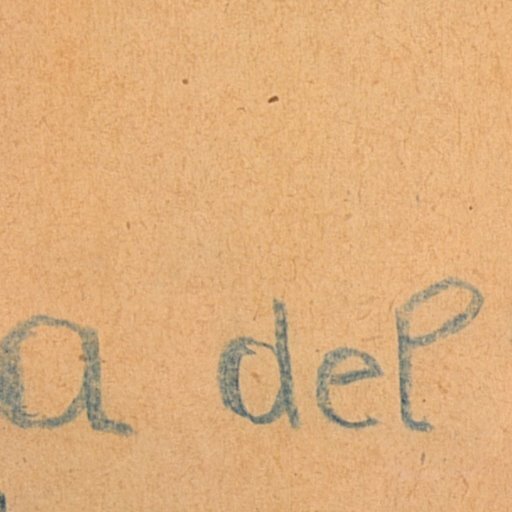 a del